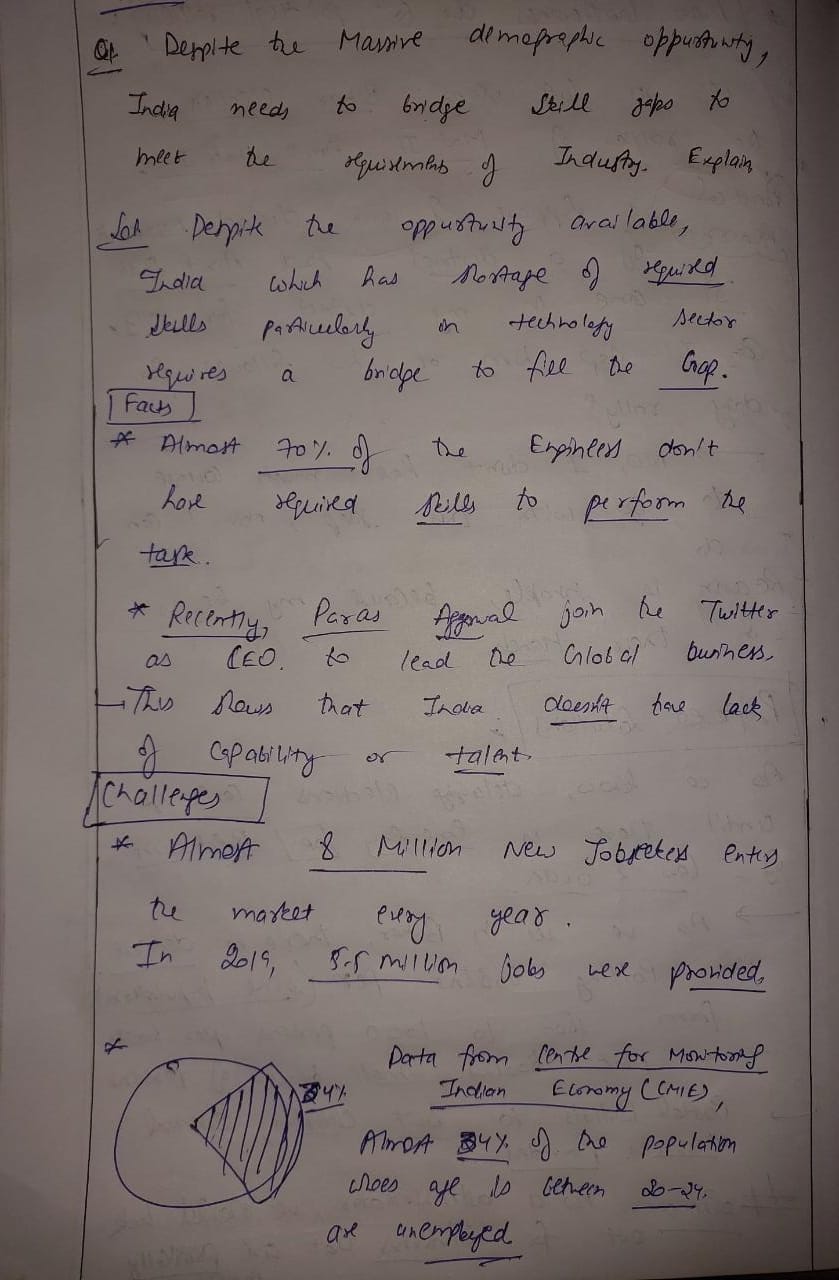 Q1 Despite the Massive demographic oppurtunity,
India needs to bridge Skill gaps to
meet the requirements of Industry. Explain
Sol Despite the oppurtunity available,
India which has shortage of required
skills particularly in technology sector
requires a bridge to fill the Gap.
Facts
* Almost 70% of the Engineers don't
have required skills to perform the
task.
* Recently, Paras Aggrwal join the Twitter
as CEO. to lead the Global business.
→ This shows that India doesn't have lack
of capability or talent.
Challenges
* Almost 8 Million New Jobseekers enters
the market every year.
In 2019, 5.5 million jobs were provided.
* Data from Centre for Monitoring
34%
Indian Economy (CMIE),
Almost 34% of the population
whoes age is between 20-24.
are unemployed